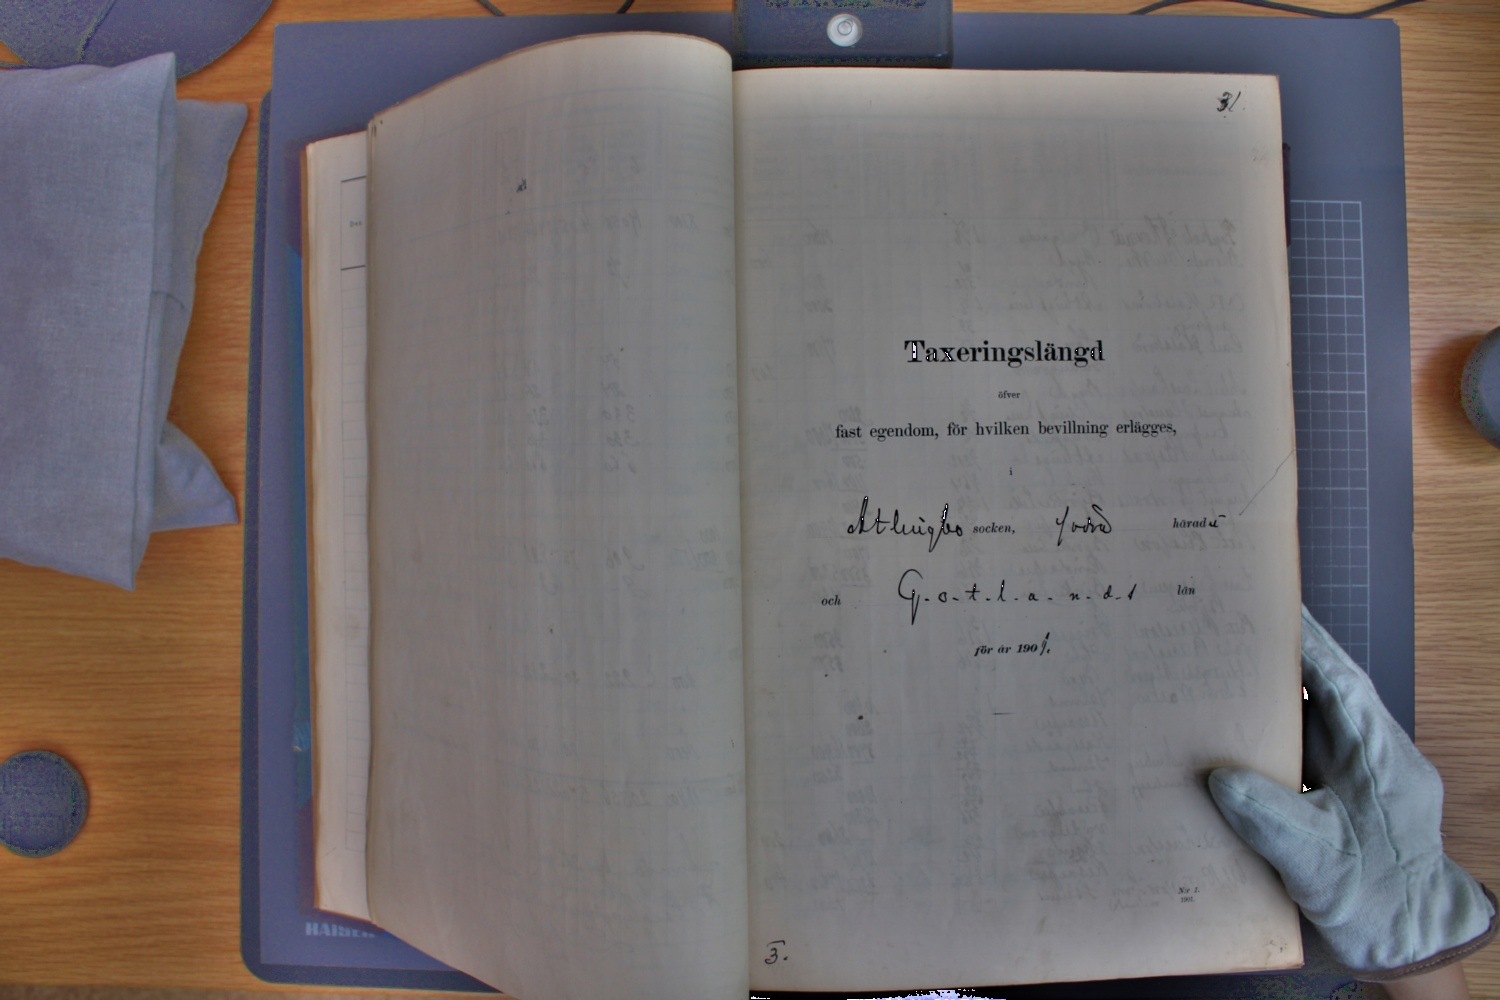 31
Taxeringslängd
öfver
fast egendom, för hvilken bevillning erlägges,
i
Atlingbo socken, härad
och G-o-t-l-a-n-d-s län
för år 1901.
N:r 1.
1901.
3.